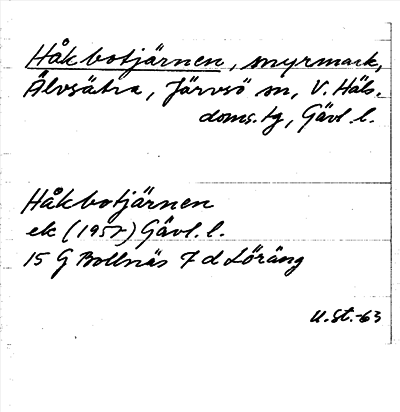 Håkbotjärnen, myrmark,
Älvsätra, Järvsö sn, V. Häls.
doms. tg, Gävl l.
Håkbotjärnen
ek (1957) Gävl. l.
15 G Bollnäs 7 d Löräng
U.St.-63